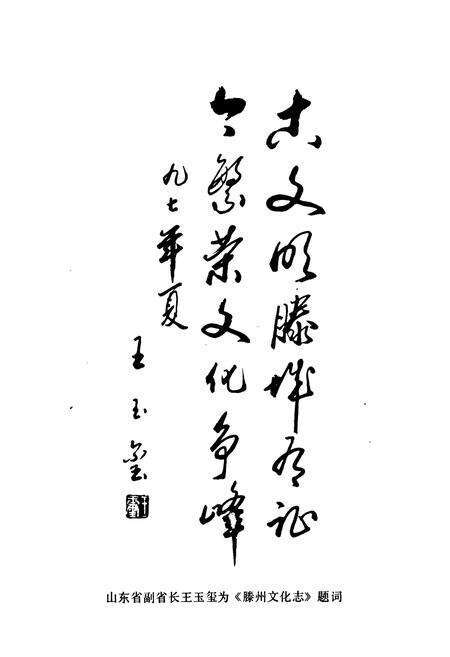 古文明滕城有证
今繁荣文化争峰
九七年夏
王玉玺
山东省副省长王玉玺为《滕州文化志》题词